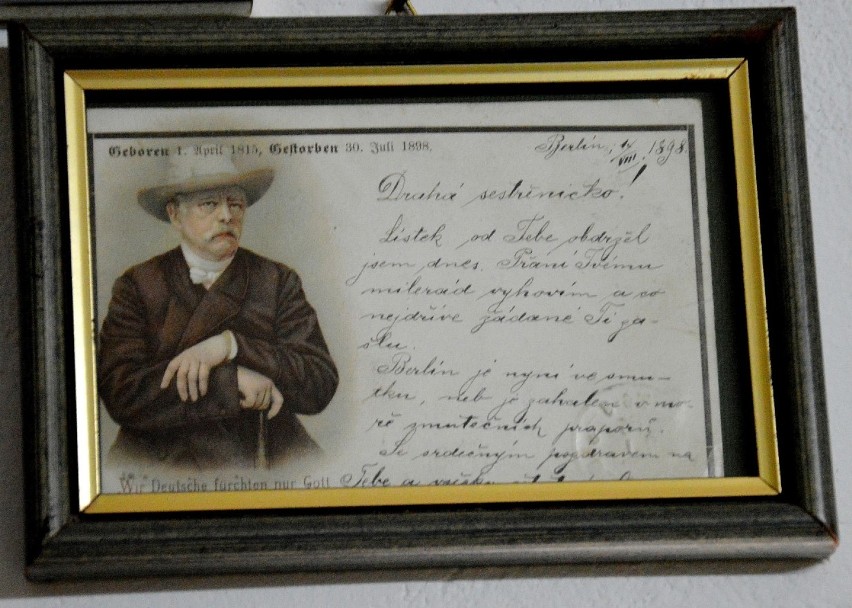 Geboren 1. April 1815, Gestorben 30. Juli 1898.
Berlin, VIII. 1898.
Drahá sestřeničko!
Lístek od Tebe obdržel
jsem dnes. Přání Tvému
milerád vyhovím a co
nejdříve žádané Ti za-
šlu.
Berlín je nyní ve smu-
tku, neb je zahalen v mo-
ře smutečních praporů.
Se srdečným pozdravem na
Wir Deutsche fürchten nur Gott
Tebe a